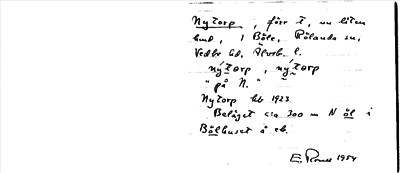 Nytorp, förr t, nu liten
lund, i Böle, Rölanda sn,
Vedbo hd, Älvsb. l.
nytorp, nytorp
"på N."
Nytorp bb 1923
Beläget c:a 300 m N öl i
Bölhuset å ek.
E. 1954